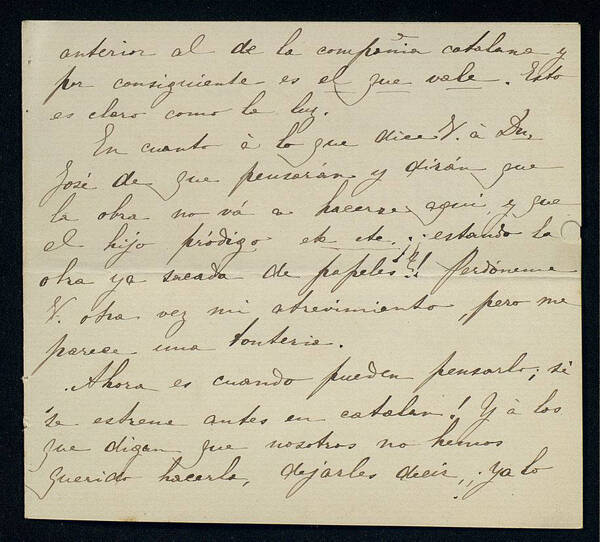 anterior al de la compañia catalana y
por consiguiente es el que vale. Esto
es claro como la luz.
En cuanto á lo que dice V. á Dn.
José de que pensarán y dirán que
la obra no vá a hacerse aqui, y que
el hijo pródigo etc etc. ¡¡estando la
obra ya sacada de papeles!! Perdóneme
V. otra vez mi atrevimiento, pero me
parece una tonteria.
Ahora es cuando pueden pensarlo; si
se estrena antes en catalan! Y á los
que digan que nosotros no hemos
querido hacerla, dejarles decir, ¡ya lo